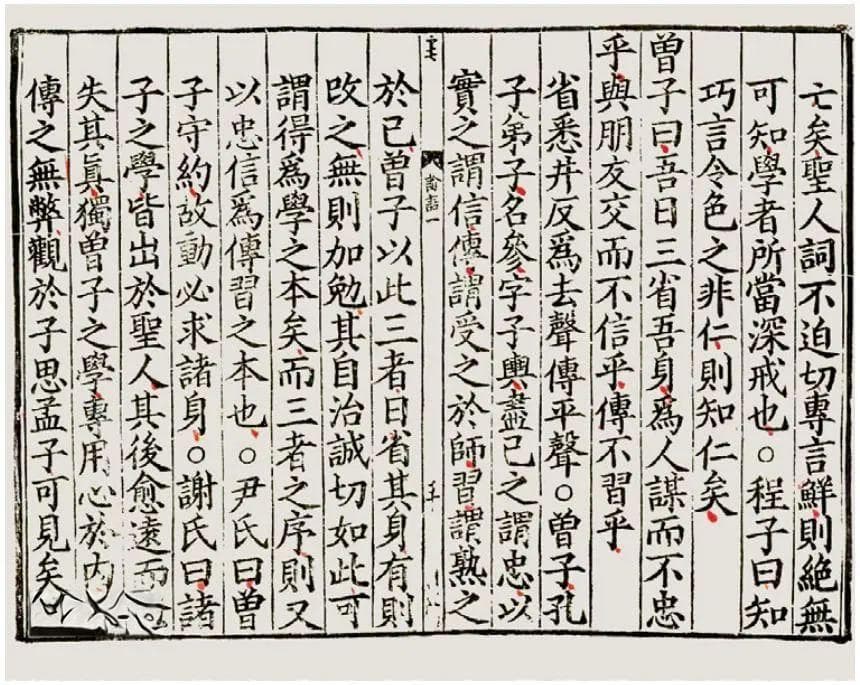 亡矣聖人詞不迫切專言鮮則絕無
可知學者所當深戒也○程子曰知
巧言令色之非仁則知仁矣
曾子曰吾日三省吾身爲人謀而不忠
乎與朋友交而不信乎傳不習乎
省悉井反爲去聲傳平聲○曾子孔
子弟子名參字子輿盡己之謂忠以
實之謂信傳謂受之於師習謂熟之
論語一
於己曾子以此三者日省其身有則
改之無則加勉其自治誠切如此可
謂得爲學之本矣而三者之序則又
以忠信爲傳習之本也○尹氏曰曾
子守約故動必求諸身○謝氏曰諸
子之學皆出於聖人其後愈遠而
失其眞獨曾子之學專用心於内
傳之無弊觀於子思孟子可見矣